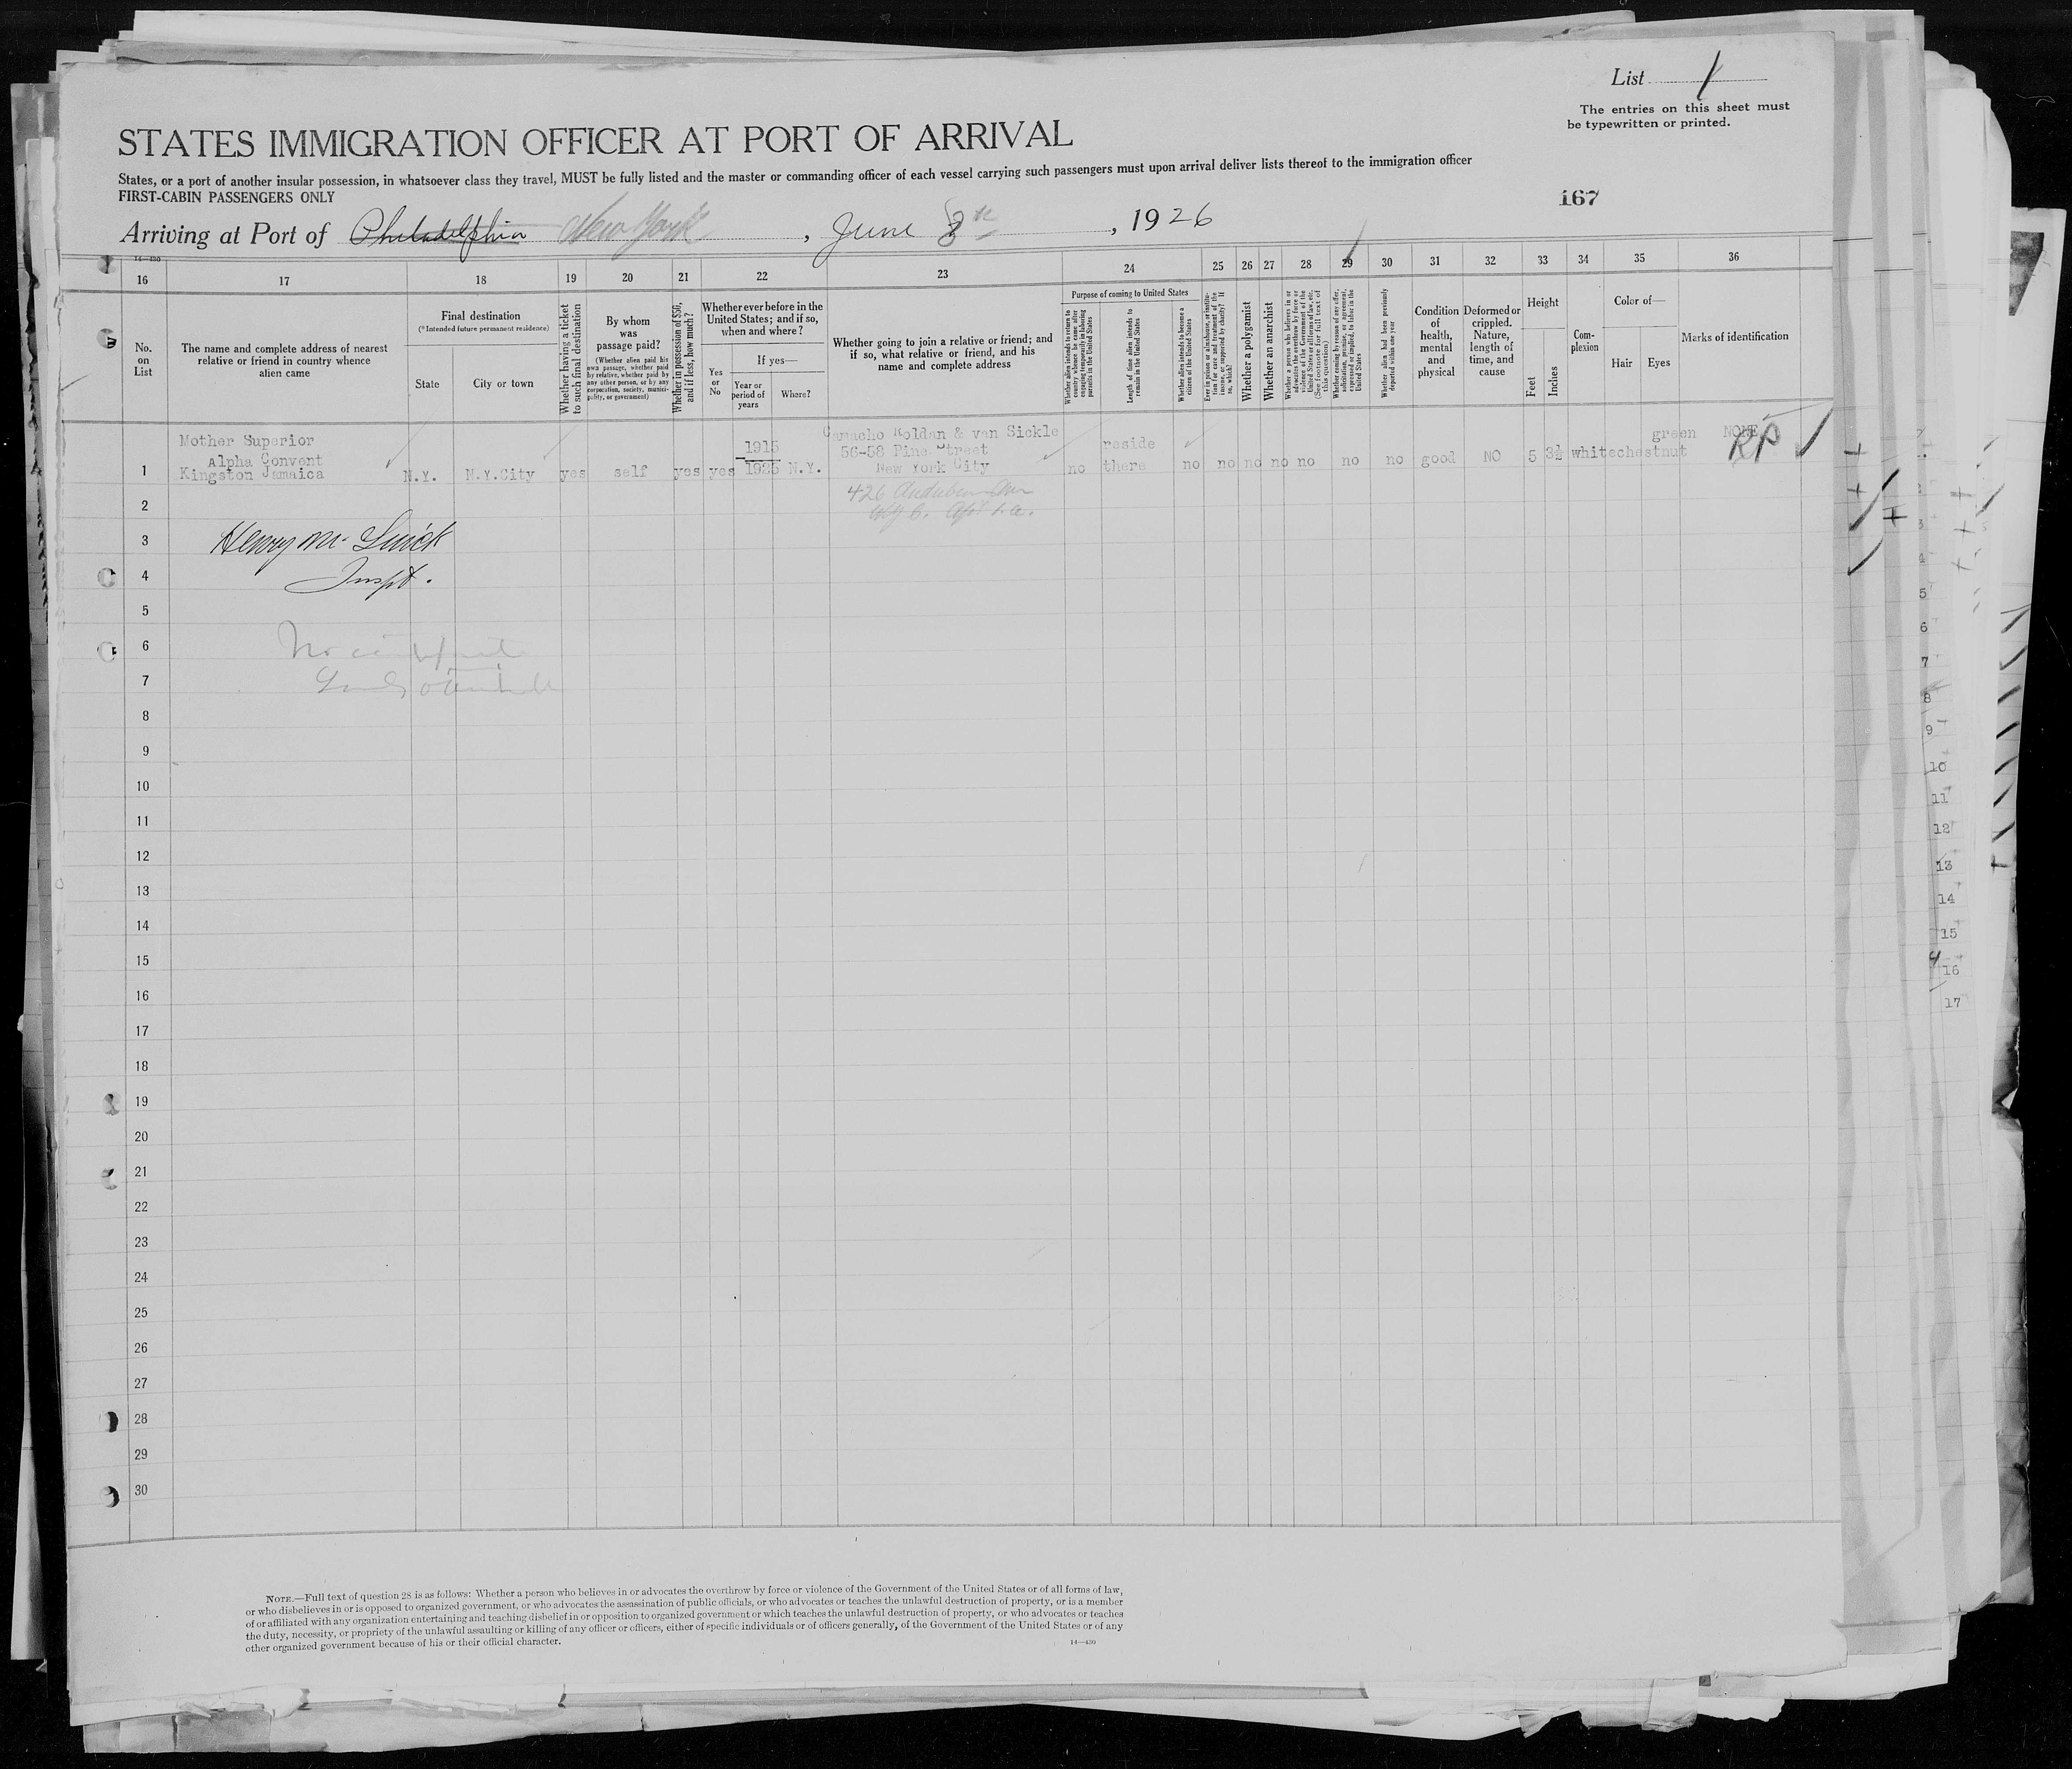 List 1
The entries on this sheet must
be typewritten or printed.
STATES IMMIGRATION OFFICER AT PORT OF ARRIVAL
States, or a port of another insular possession, in whatsoever class they travel, MUST be fully listed and the master or commanding officer of each vessel carrying such passengers must upon arrival deliver lists thereof to the immigration officer
FIRST-CABIN PASSENGERS ONLY
167
Arriving at Port of Philadelphia New York, June 8th, 1926
14—430
16 17 18 19 20 21 22 23 24 25 26 27 28 29 30 31 32 33 34 35 36
No.
on
List
The name and complete address of nearest
relative or friend in country whence
alien came
Final destination
(*Intended future permanent residence)
State
City or town
Whether having a ticket
to such final destination
By whom
was
passage paid?
(Whether alien paid his
own passage, whether paid
by relative, whether paid by
any other person, or by any
corporation, society, munici-
pality, or government)
Whether in possession of $50,
and if less, how much?
Whether ever before in the
United States; and if so,
when and where?
Yes
or
No
If yes—
Year or
period of
years
Where?
Whether going to join a relative or friend; and
if so, what relative or friend, and his
name and complete address
Purpose of coming to United States
Whether alien intends to return to
country whence he came after
engaging temporarily in laboring
pursuits in the United States
Length of time alien intends to
remain in the United States
Whether alien intends to become a
citizen of the United States
Ever in prison or almshouse, or institu-
tion for care and treatment of the
insane, or supported by charity? If
so, which?
Whether a polygamist
Whether an anarchist
Whether a person who believes in or
advocates the overthrow by force or
violence of the Government of the
United States or all forms of law, etc.
(See footnote for full text of
this question)
Whether coming by reason of any offer,
solicitation, promise, or agreement,
expressed or implied, to labor in the
United States
Whether alien had been previously
deported within one year
Condition
of
health,
mental
and
physical
Deformed or
crippled.
Nature,
length of
time, and
cause
Height
Feet
Inches
Com-
plexion
Color of—
Hair
Eyes
Marks of identification
Mother Superior
Alpha Convent
1 Kingston Jamaica N.Y. N.Y.City yes self yes yes 1915 1925 N.Y.
Camacho Roldan & van Sickle
56-58 Pine Street
New York City
no reside there no no no no no no no good NO 5 3½ white chestnut green NONE RP
426 Audubon Ave
2
3 Henry M.
4 Inspt.
5
6
7
8
9
10
11
12
13
14
15
16
17
18
19
20
21
22
23
24
25
26
27
28
29
30
NOTE.—Full text of question 28 is as follows: Whether a person who believes in or advocates the overthrow by force or violence of the Government of the United States or of all forms of law,
or who disbelieves in or is opposed to organized government, or who advocates the assassination of public officials, or who advocates or teaches the unlawful destruction of property, or is a member
of or affiliated with any organization entertaining and teaching disbelief in or opposition to organized government or which teaches the unlawful destruction of property, or who advocates or teaches
the duty, necessity, or propriety of the unlawful assaulting or killing of any officer or officers, either of specific individuals or of officers generally, of the Government of the United States or of any
other organized government because of his or their official character.
14—430
3
4
5
6
7
8
9
10
11
12
13
14
15
16
17